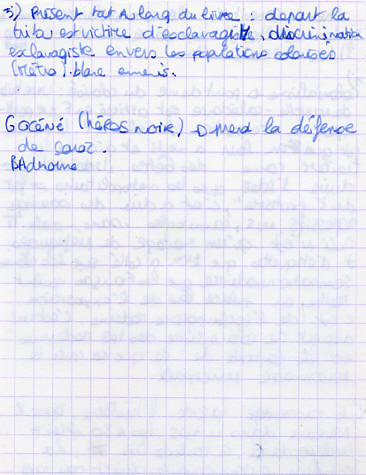 3) Present tout Au long du livre : depart la
tribu est victime d'esclavagiste, discrimination
esclavagiste envers les populations colonisées
(Métro) . blanc ennemis.
GOCÉNÉ (héROS NOIR) prend la défence
de
BAdimoine